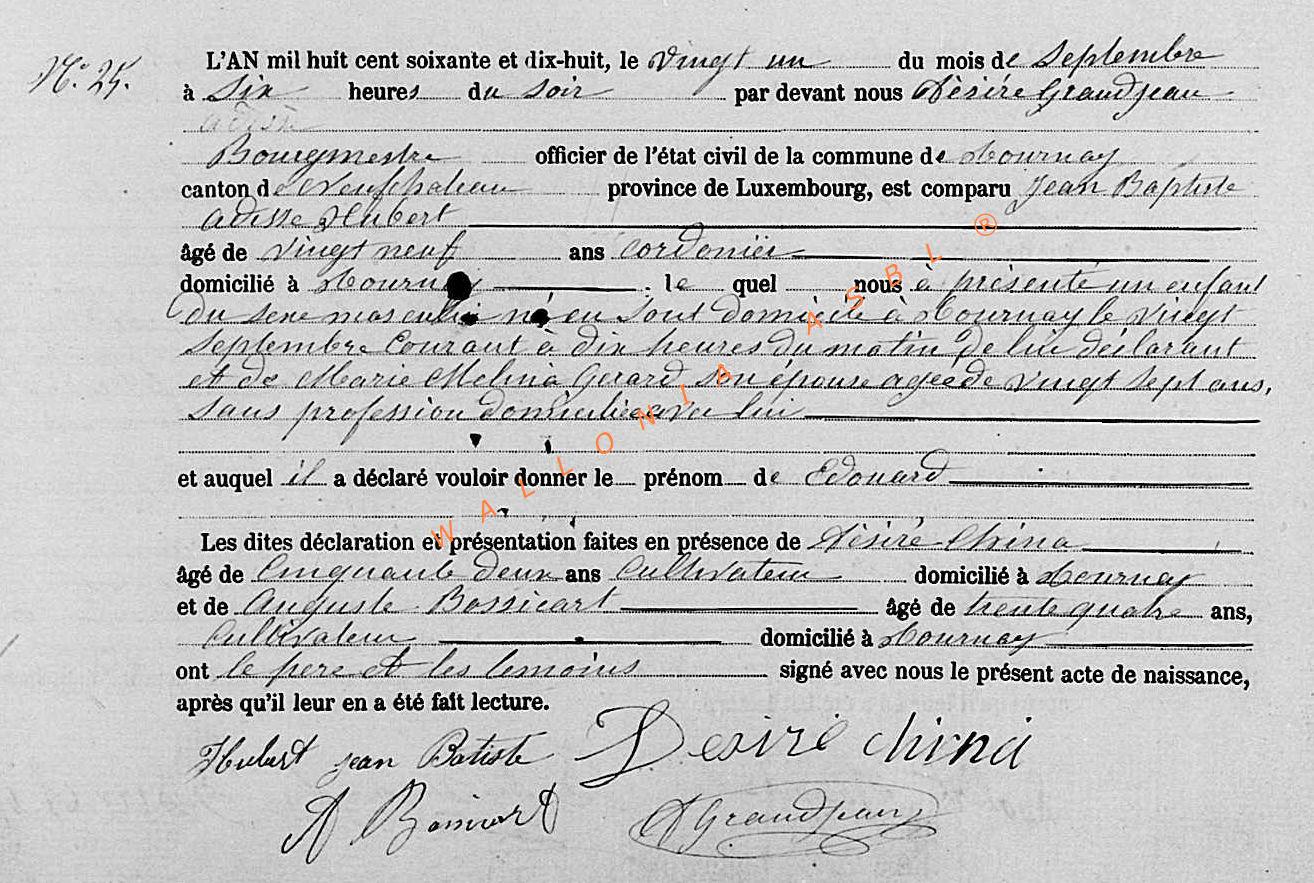 N° 25.
L'AN mil huit cent soixante et dix-huit, le vingt un du mois de Septembre
à Six heures du soir par devant nous Désiré Grandjean
Bourgmestre officier de l'état civil de la commune de Tournay
canton de Neufchateau province de Luxembourg, est comparu Jean Baptiste
Adisse Hubert
âgé de vingt neuf ans cordonier
domicilié à Tournay le quel nous à présenté un enfant
du sexe masculin né en Sont domicile à Tournay le vingt
Septembre Courant à dix heures du matin de lui déclarant
et de Marie Melina Gerard son épouse agée de vingt Sept ans,
Sans profession domiciliée avec lui
et auquel il a déclaré vouloir donner le prénom de Edouard
Les dites déclaration et présentation faites en présence de Désiré China
âgé de Cinquante deux ans Cultivateur domicilié à Tournay
et de Auguste Bossicart âgé de trente quatre ans,
Cultivateur domicilié à Tournay
ont le pere et les temoins signé avec nous le présent acte de naissance,
après qu'il leur en a été fait lecture.
Hubert jean Batiste Desiré China
A Bossicart DGrandjean
WALLONIA ASBL ®